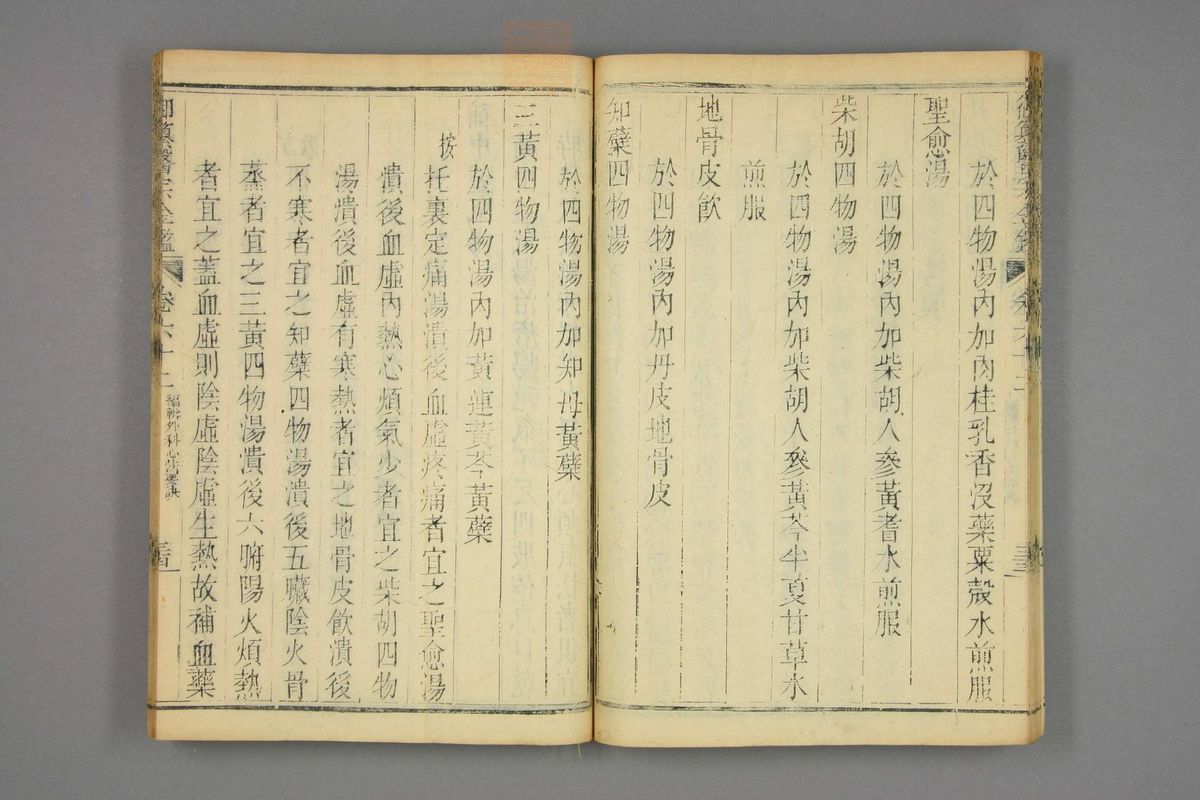 於四物湯內加肉桂乳香沒藥粟殼水煎服
聖愈湯
於四物湯內加柴胡人參黃耆水煎服
柴胡四物湯
於四物湯內加柴胡人參黃芩半夏甘草水
煎服
地骨皮飲
於四物湯內加丹皮地骨皮
知蘗四物湯
於四物湯內加知母黃蘗
三黃四物湯
於四物湯內加黃連黃芩黃蘗
按托裏定痛湯潰後血虛疼痛者宜之聖愈湯
潰後血虛內熱心煩氣少者宜之柴胡四物
湯潰後血虛有寒熱者宜之地骨皮飲潰後
不寒者宜之知蘗四物湯潰後五臟陰火骨
蒸者宜之三黃四物湯潰後六腑陽火煩熱
者宜之蓋血虛則陰虛陰虛生熱故補血藥
御纂醫宗金鑑 卷六十二 編輯外科心法要訣